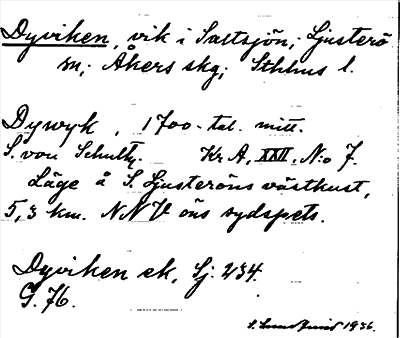 Dyviken, vik i Saltsjön; Ljusterö
sn; Åkers skg; Sthlms l.
Dywyk, 1700-tal. mitt.
S. von Schultz. Kr A, XXII, N:o 7.
Läge å S. Ljusteröns västkust,
5,3 km. NNV öns sydspets.
Dyviken ek. Lj. 234.
G. 76.
S. 1936.